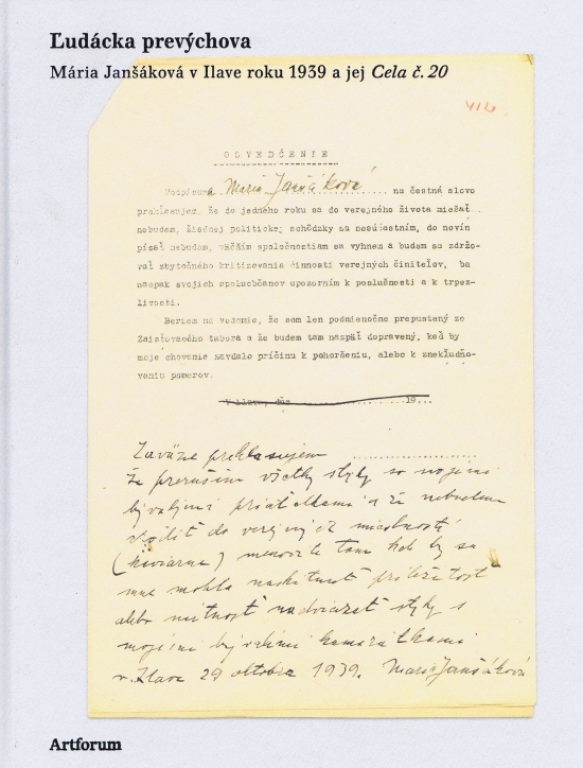 Ľudácka prevýchova
Mária Janšáková v Ilave roku 1939 a jej Cela č. 20
412
OSVEDČENIE
Podpísaná Mária Janšáková na čestné slovo
prehlasujem, že do jedného roku sa do verejného života miešať
nebudem, žiadnej politickej schôdzky sa nesúčastním, do novín
písať nebudem, väčším spoločnostiam sa vyhnem a budem sa zdržo-
vať zbytočného kritizovania činnosti verejných činiteľov, ba
naopak svojich spoluobčanov upozorním k poslušnosti a k trpez-
livosti.
Beriem na vedomie, že som len podmienečne prepustený zo
Zaisťovacieho tábora a že budem tam nazpäť dopravený, keď by
moje chovanie zavdalo príčinu k pohoršeniu, alebo k znekľudňo-
vaniu pomerov.
V Ilave, dňa 19...
Záväzne prehlasujem
že preruším všetky styky so svojimi
bývalými priateľkami a že nebudem
chodiť do verejných miestností
(kaviarne) menovite tam kde by sa
mne mohla naskytnúť príležitosť
alebo nutnosť nadviazať styky s
mojimi bývalými kamarátkami
v Ilave 29 októbra 1939. Mária Janšáková
Artforum